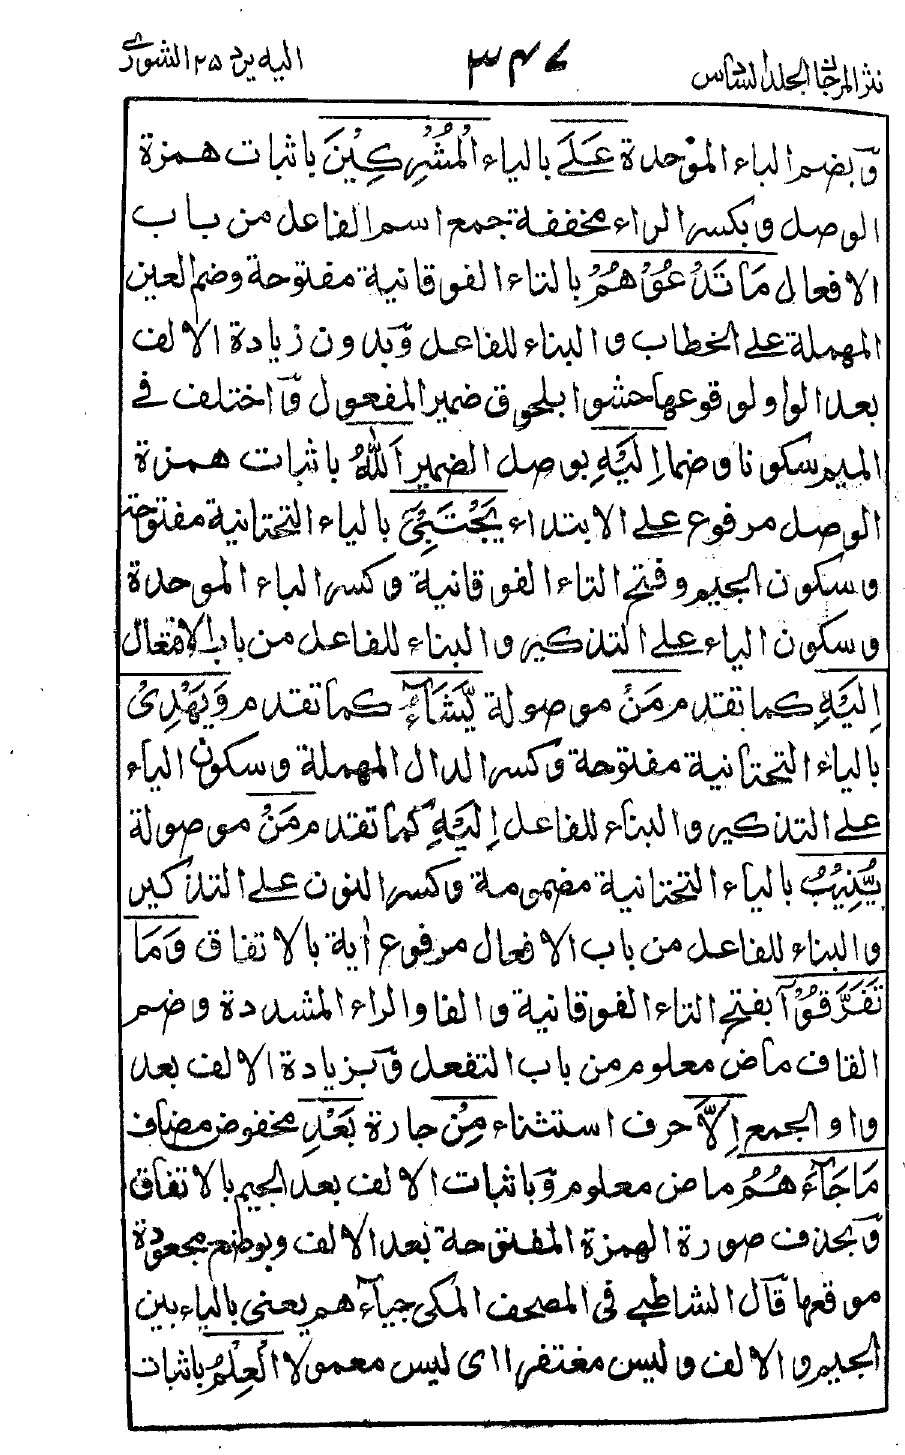 نثر المرجان الجلد السادس ٣٤٧ اليه يرد ٢٥ الشورى
وَبضم الباء الموحدة عَلَى بالياء الْمُشْرِكِيْنَ باثبات همزة
الوصل وبكسر الراء مخففة جمع اسم الفاعل من باب
الافعال مَا تَدْعُوْهُمْ بالتاء الفوقانية مفتوحة وضم العين
المهملة على الخطاب والبناء للفاعل وَبدون زيادة الالف
بعد الواو لوقوعها حشوا بلحوق ضمير المفعول وَاختلف فى
الميم سكونا وضما اِلَيْهِ بوصل الضمير اَللّٰهُ باثبات همزة
الوصل مرفوع على الابتداء يَجْتَبِيْٓ بالياء التحتانية مفتوحة
وسكون الجيم وفتح التاء الفوقانية وكسر الباء الموحدة
وسكون الياء على التذكير والبناء للفاعل من باب الافتعال
اِلَيْهِ كما تقدم مَنْ موصولة يَّشَآءُ كما تقدم وَيَهْدِيْ
بالياء التحتانية مفتوحة وكسر الدال المهملة وسكون الياء
على التذكير والبناء للفاعل اِلَيْهِ كما تقدم مَنْ موصولة
يُّنِيْبُ بالياء التحتانية مضمومة وكسر النون على التذكير
والبناء للفاعل من باب الافعال مرفوع أية بالاتفاق وَمَا
تَفَرَّقُوْٓا بفتح التاء الفوقانية والفا والراء المشددة وضم
القاف ماض معلوم من باب التفعل وَبزيادة الالف بعد
واو الجمع اِلَّا حرف استثناء مِنْ جارة بَعْدِ مخفوض مضاف
مَا جَآءَهُمُ ماض معلوم وَباثبات الالف بعد الجيم بالاتفاق
وَبحذف صورة الهمزة المفتوحة بعد الالف وبوضع مجعودة
موقعها قَال الشاطبى فى المصحف المكى جيآءهم يعنى بالياء بين
الجيم والالف وليس مغتفرا اى ليس معمولا الْعِلْمُ باثبات